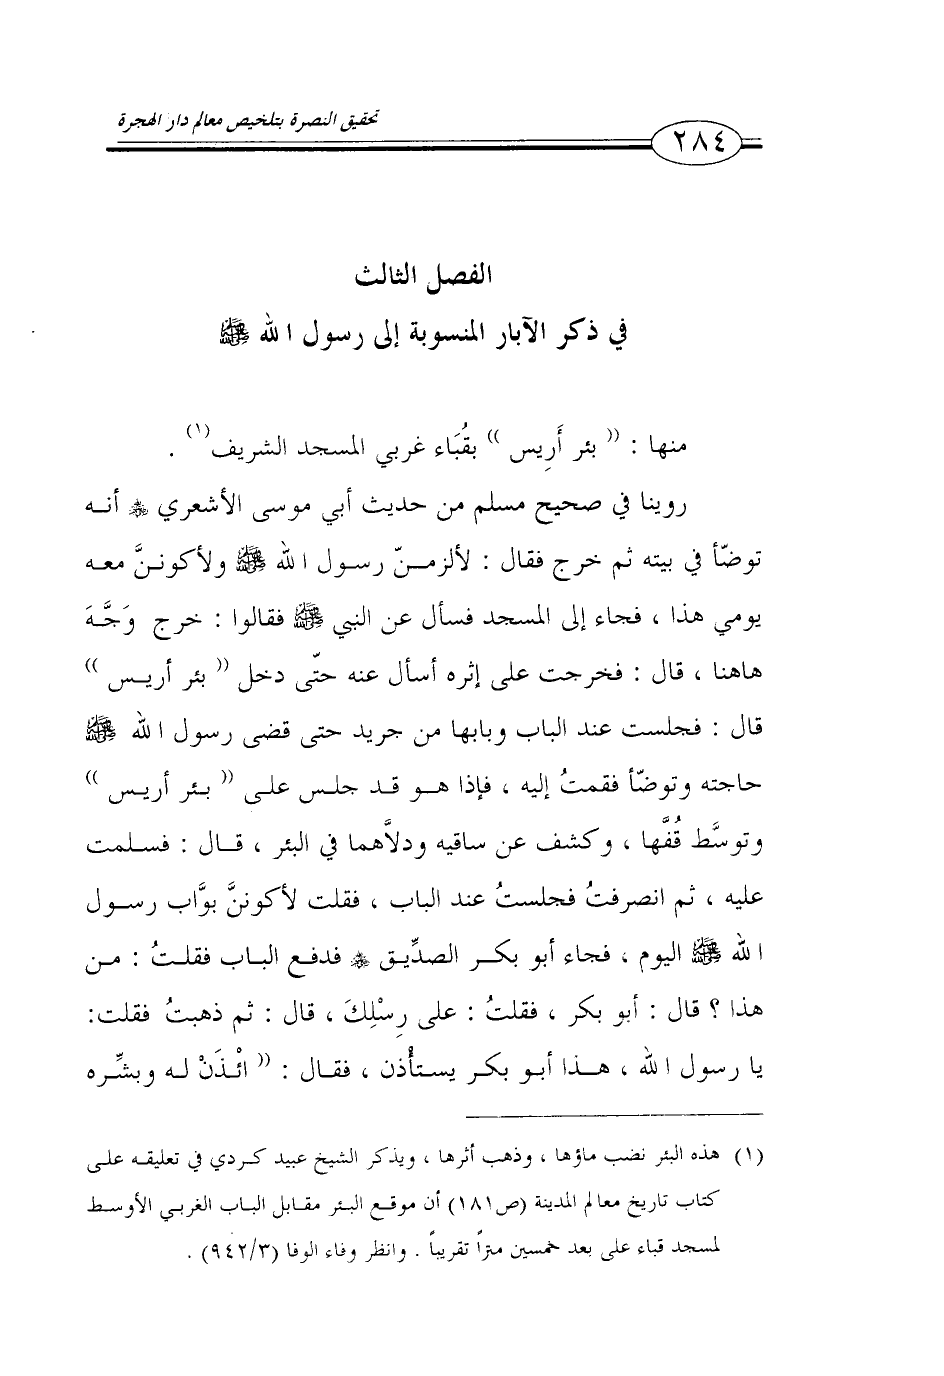 تحقيق النصرة بتلخيص معالم دار الهجرة
٢٨٤
الفصل الثالث
في ذكر الآبار المنسوبة إلى رسول الله ﷺ
منها : (( بئر أَرِيس )) بقُبَاء غربي المسجد الشريف(١) .
روينا في صحيح مسلم من حديث أبي موسى الأشعري ؓ أنه
توضّأ في بيته ثم خرج فقال : لألزمنّ رسول الله ﷺ ولأكوننَّ معه
يومي هذا ، فجاء إلى المسجد فسأل عن النبي ﷺ فقالوا : خرج وَجَّهَ
هاهنا ، قال : فخرجت على إثره أسأل عنه حتّى دخل (( بئر أريس ))
قال : فجلست عند الباب وبابها من جريد حتى قضى رسول الله ﷺ
حاجته وتوضّأ فقمتُ إليه ، فإذا هو قد جلس على (( بئر أريس ))
وتوسَّط قُفَّها ، وكشف عن ساقيه ودلاَّهما في البئر ، قال : فسلمت
عليه ، ثم انصرفتُ فجلستُ عند الباب ، فقلت لأكوننَّ بوَّاب رسول
الله ﷺ اليوم ، فجاء أبو بكر الصدِّيق ؓ فدفع الباب فقلتُ : من
هذا ؟ قال : أبو بكر ، فقلتُ : على رِسْلِكَ ، قال : ثم ذهبتُ فقلت:
يا رسول الله ، هذا أبو بكر يستأْذن ، فقال : (( ائْذَنْ له وبشِّره
(١) هذه البئر نضب ماؤها ، وذهب أثرها ، ويذكر الشيخ عبيد كردي في تعليقه على
كتاب تاريخ معالم المدينة (ص١٨١) أن موقع البئر مقابل الباب الغربي الأوسط
لمسجد قباء على بعد خمسين متراً تقريباً . وانظر وفاء الوفا (٩٤٢/٣) .